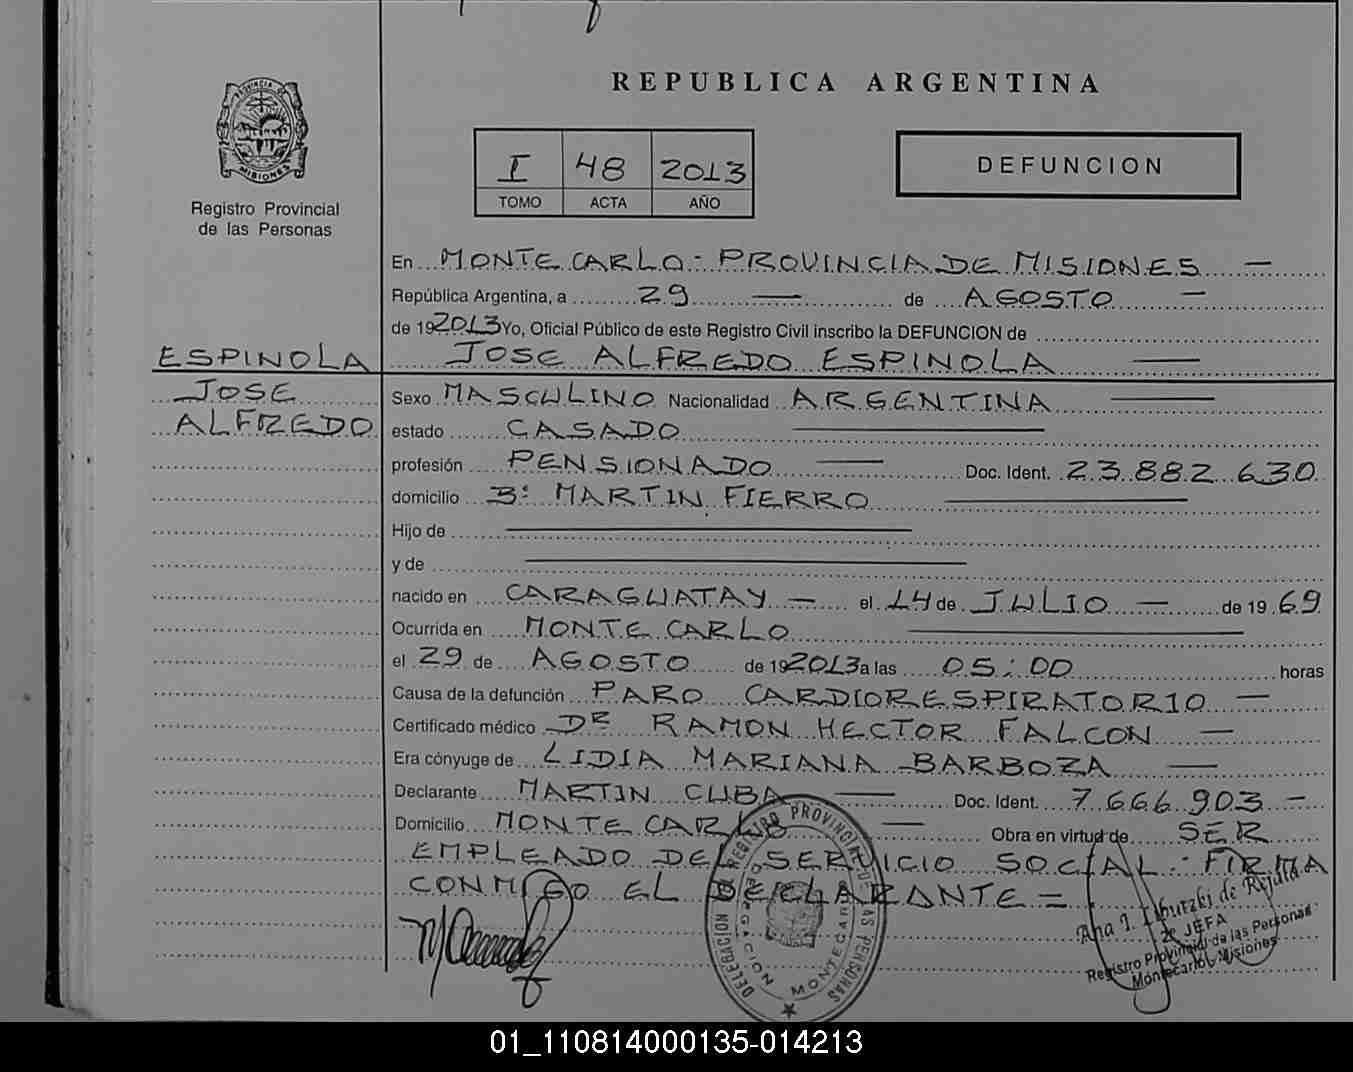 REPUBLICA ARGENTINA
PROVINCIA DE
MISIONES
Registro Provincial
de las Personas
I 48 2013
TOMO ACTA AÑO
DEFUNCION
En MONTECARLO - PROVINCIA DE MISIONES —
República Argentina, a 29 — de AGOSTO —
de 192013 Yo, Oficial Público de este Registro Civil inscribo la DEFUNCION de
JOSE ALFREDO ESPINOLA —
ESPINOLA
JOSE
ALFREDO
Sexo MASCULINO Nacionalidad ARGENTINA —
estado CASADO —
profesión PENSIONADO — Doc. Ident. 23.882.630
domicilio Bº MARTIN FIERRO —
Hijo de —
y de —
nacido en CARAGUATAY — el 14 de JULIO — de 1969
Ocurrida en MONTECARLO —
el 29 de AGOSTO de 192013 a las 05:00 horas
Causa de la defunción PARO CARDIORESPIRATORIO —
Certificado médico DR RAMON HECTOR FALCON —
Era cónyuge de LIDIA MARIANA BARBOZA —
Declarante MARTIN CUBA — Doc. Ident. 7.666.903 —
Domicilio MONTECARLO — Obra en virtud de SER
EMPLEADO DEL SERVICIO SOCIAL - FIRMA
CONMIGO EL DECLARANTE =
REGISTRO PROVINCIAL DE LAS PERSONAS
DELEGACION MONTECARLO
Ana I. de
2ª JEFA
Registro Provincial de las Personas
Montecarlo Misiones
01_110814000135-014213